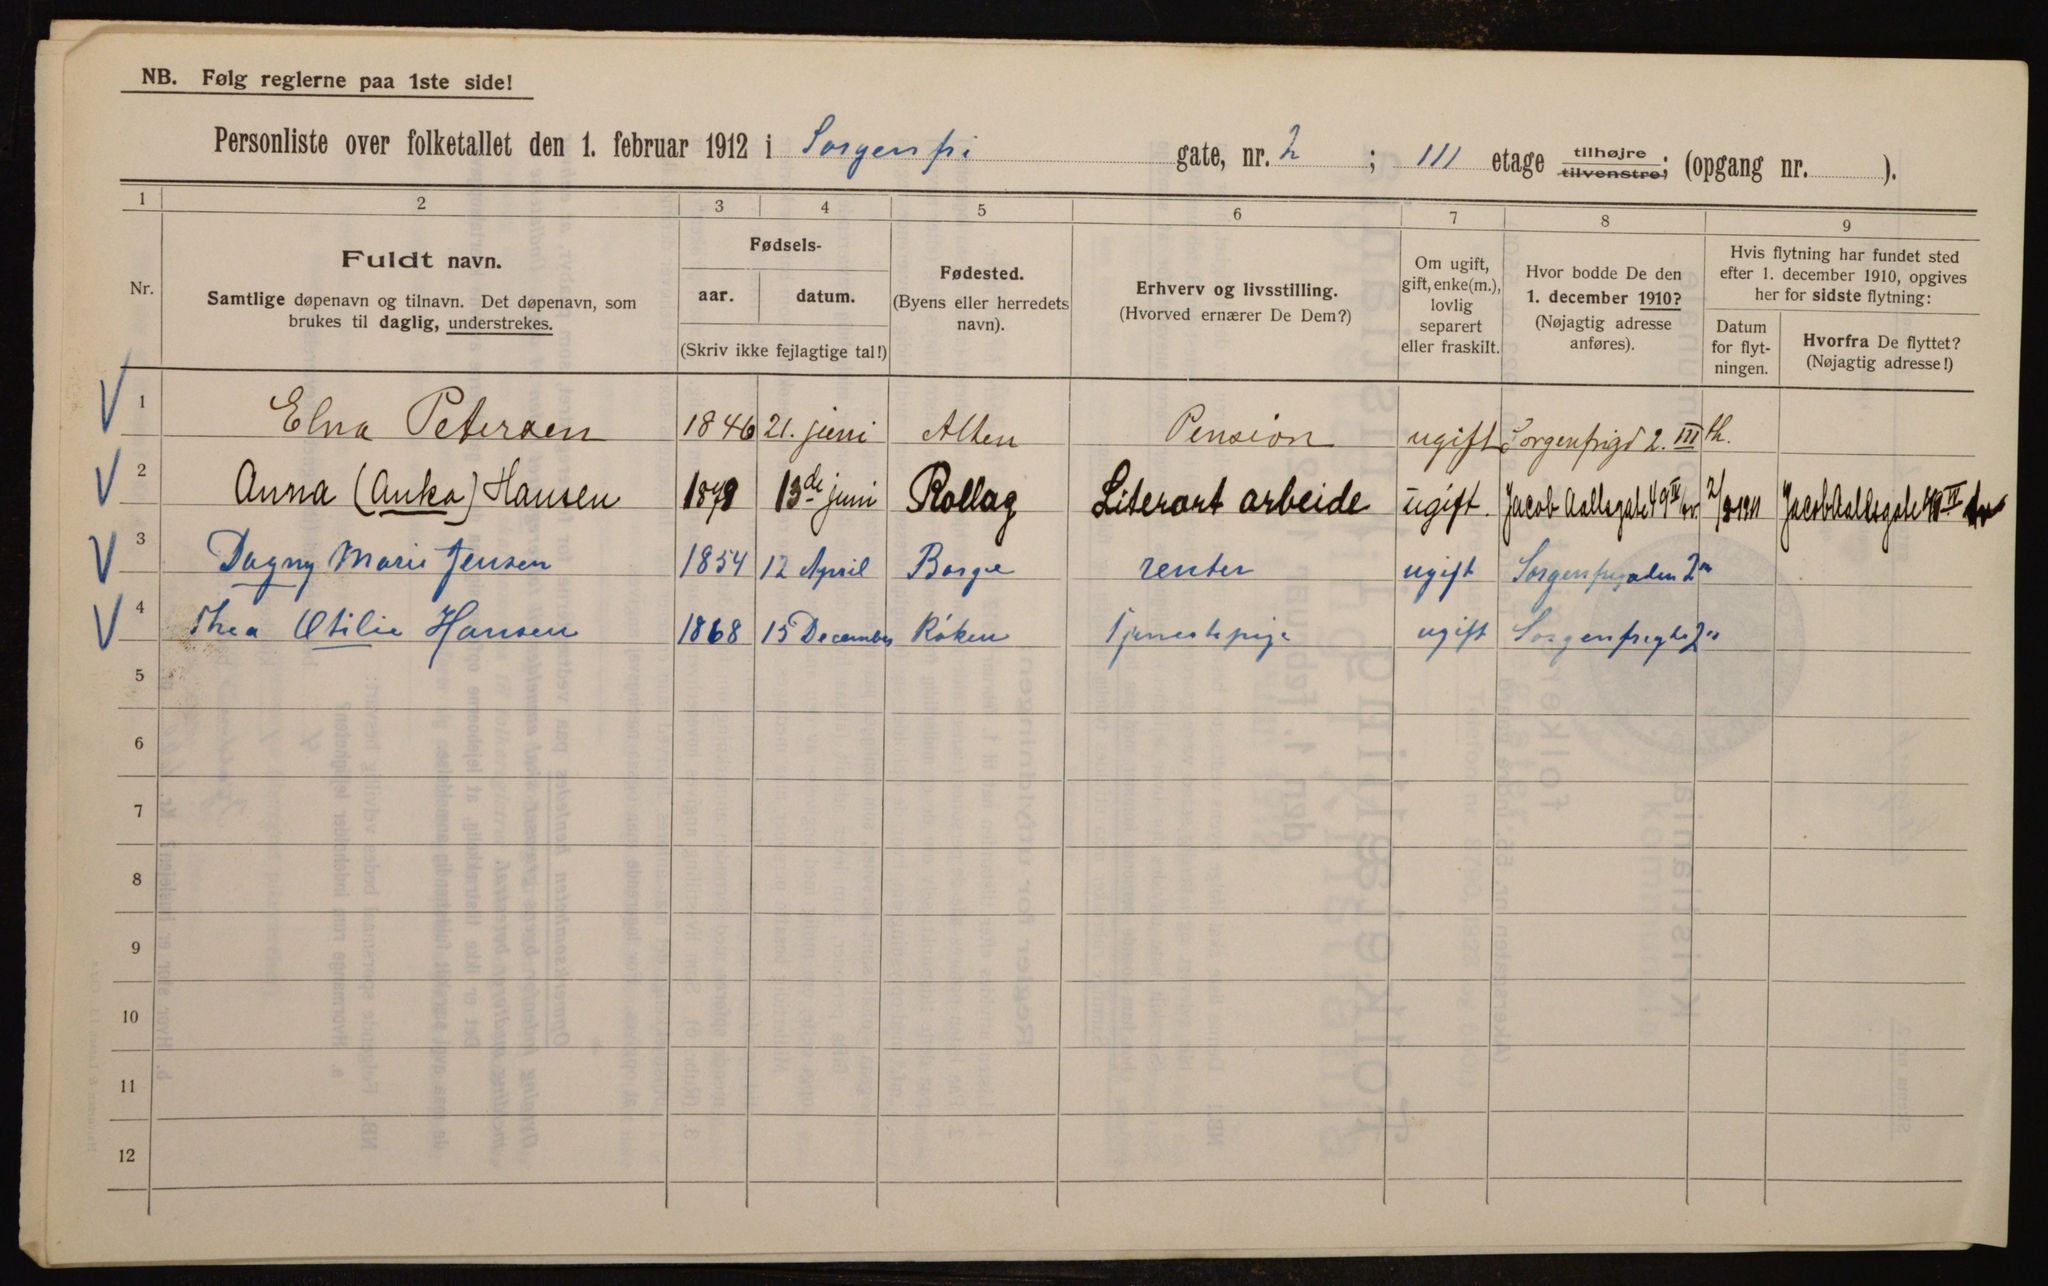 NB. Følg reglerne paa 1ste side!
Personliste over folketallet den 1. februar 1912 i Sorgenfri gate, nr. 2 ; III etage tilhøjre tilvenstre; (opgang nr. ).
1 2 3 4 5 6 7 8 9
Nr.
Fuldt navn.
Samtlige døpenavn og tilnavn. Det døpenavn, som
brukes til daglig, understrekes.
Fødsels-
aar. datum.
(Skriv ikke fejlagtige tal!)
Fødested.
(Byens eller herredets
navn).
Erhverv og livsstilling.
(Hvorved ernærer De Dem?)
Om ugift,
gift, enke(m.),
lovlig
separert
eller fraskilt.
Hvor bodde De den
1. december 1910?
(Nøjagtig adresse
anføres).
Hvis flytning har fundet sted
efter 1. december 1910, opgives
her for sidste flytning:
Datum
for flyt-
ningen.
Hvorfra De flyttet?
(Nøjagtig adresse!)
1 Elna Petersen 1846 21. juni Alten Pension ugift Sorgenfrigd 2. III th.
2 Anna (Anka) Hansen 13de juni Rollag Literært arbeide ugift. Jacob Aallsgate 49 IV 1911 Jacob Aallsgate IV
3 Dagny Marie Jensen 1854 12 April Borge renter ugift Sorgenfrigaden 2
4 Thea Otilie Hansen 1868 15 December Røken Tjenestepige ugift 2
5
6
7
8
9
10
11
12